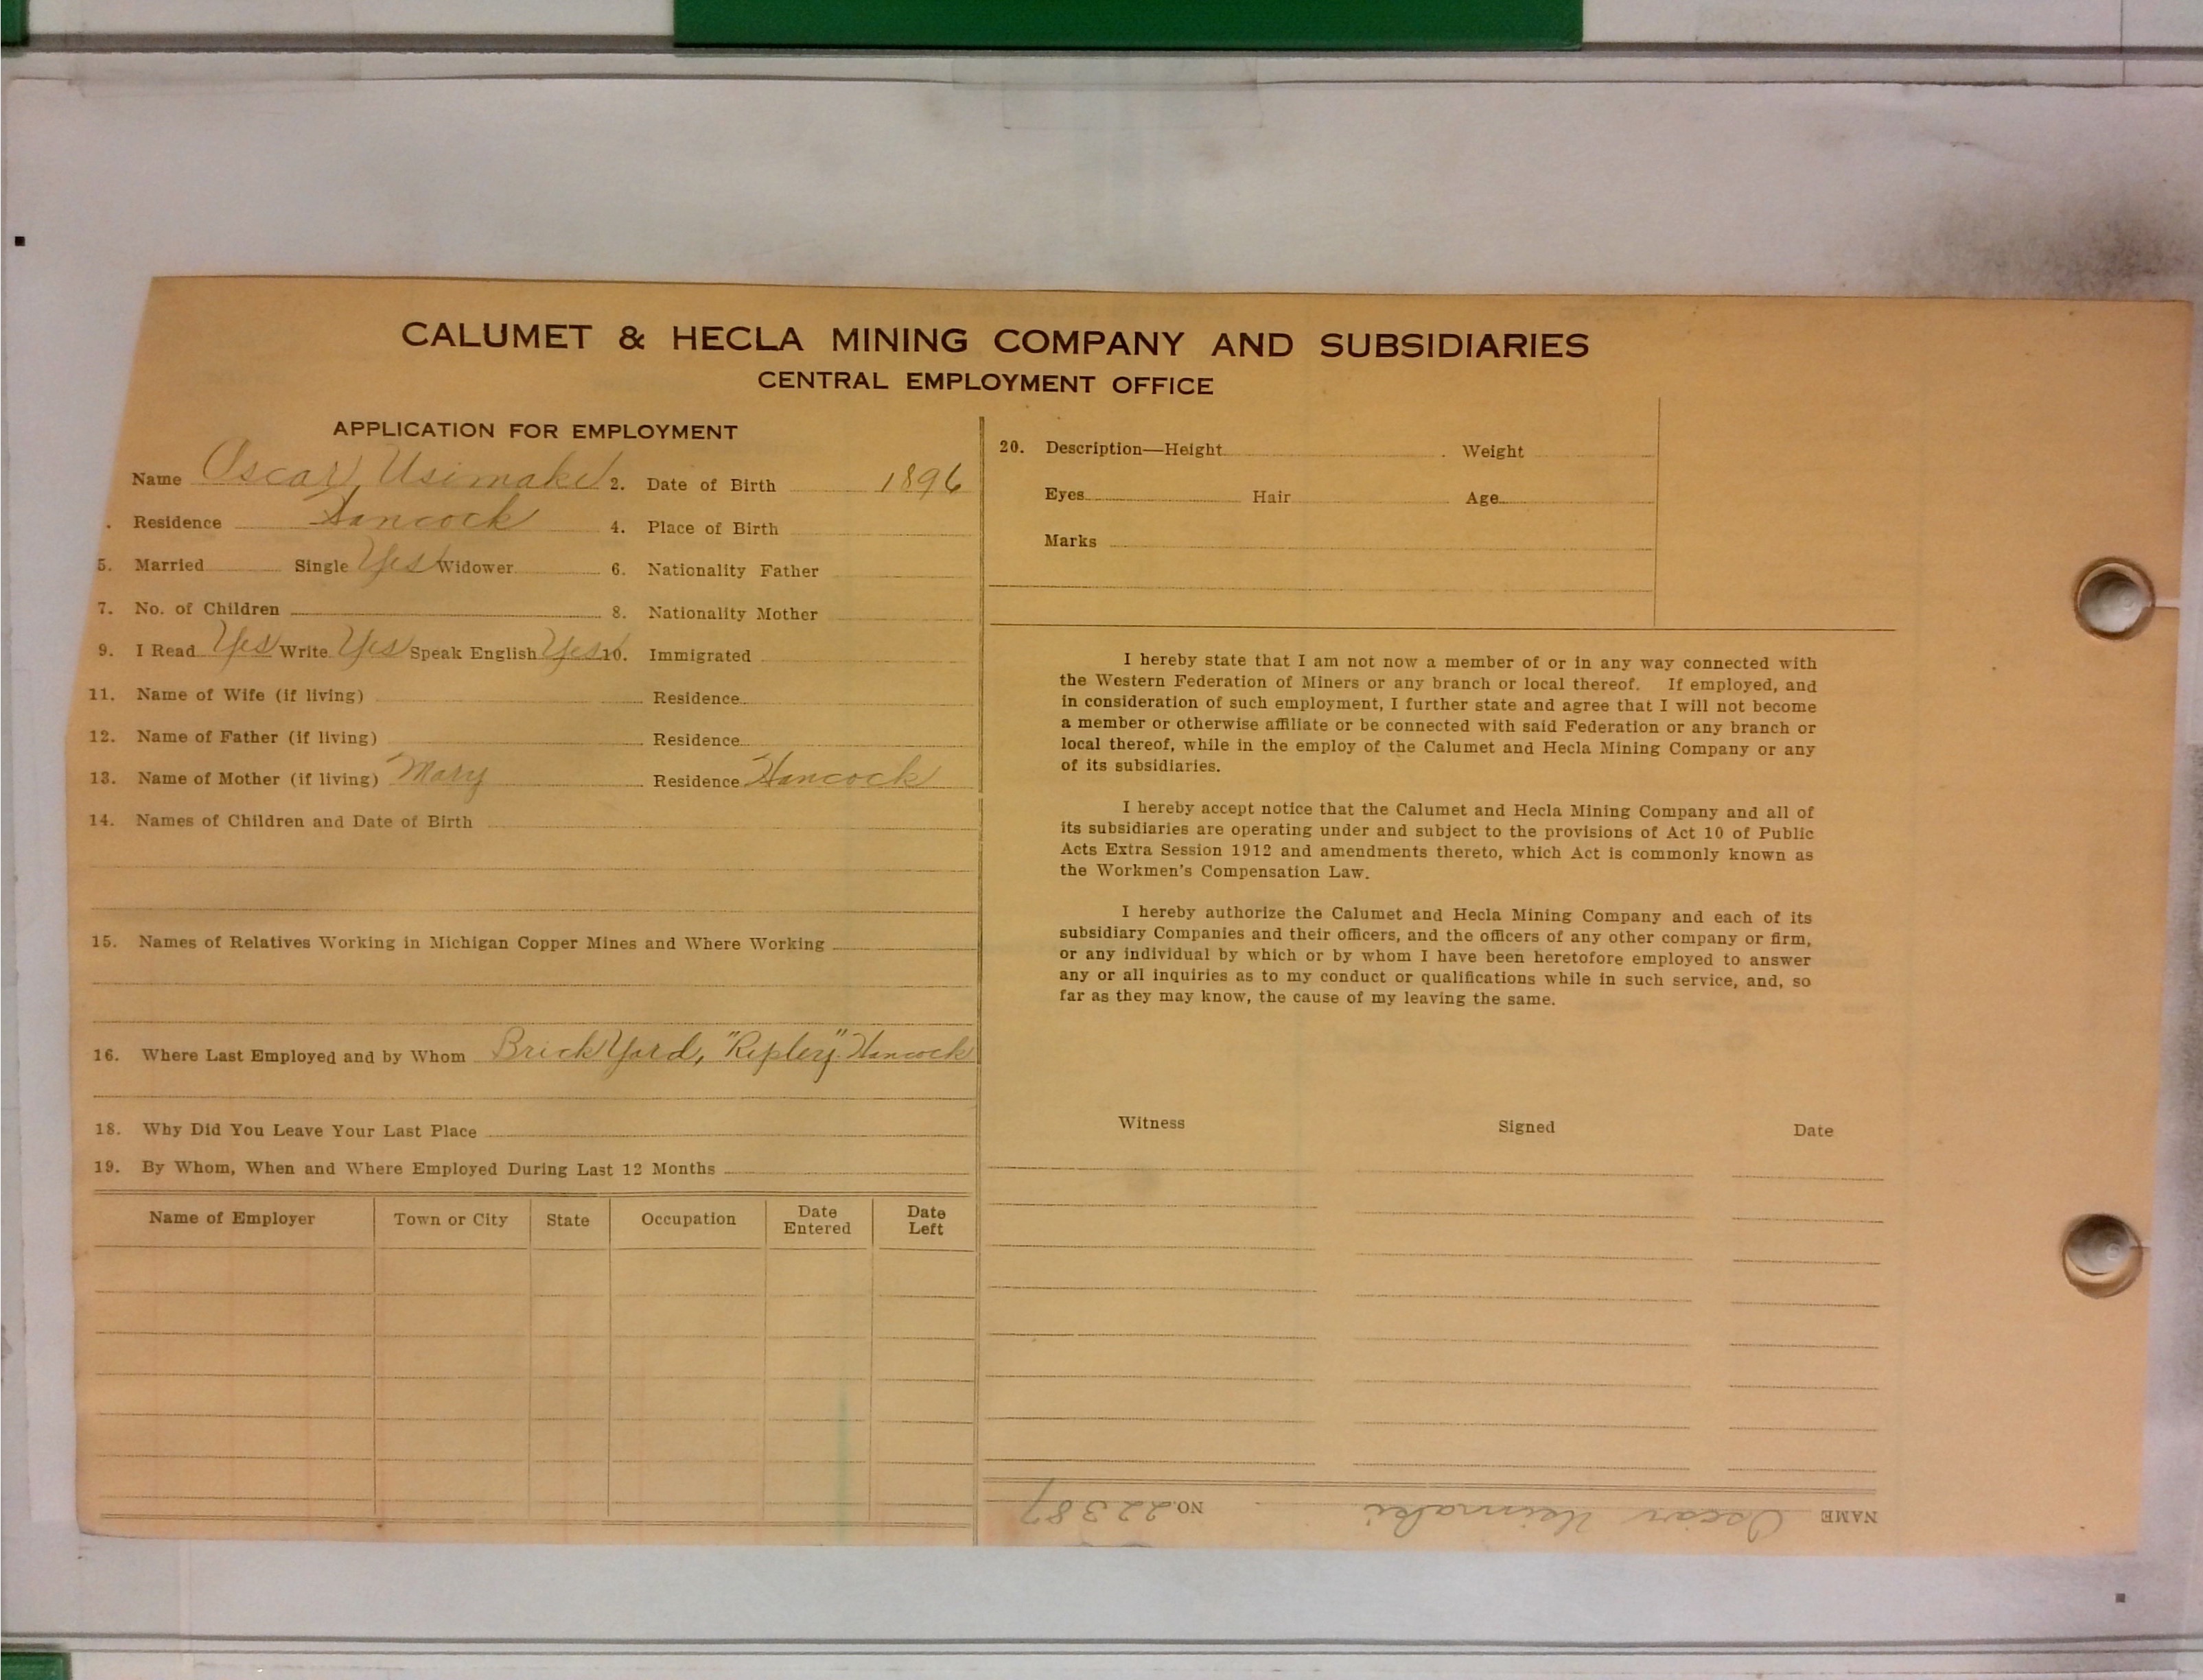 CALUMET & HECLA MINING COMPANY AND SUBSIDIARIES
CENTRAL EMPLOYMENT OFFICE
APPLICATION FOR EMPLOYMENT
Name Oscar Usimaki 2. Date of Birth 1896
. Residence Hancock 4. Place of Birth
5. Married Single Yes Widower 6. Nationality Father
7. No. of Children 8. Nationality Mother
9. I Read Yes Write Yes Speak English Yes 10. Immigrated
11. Name of Wife (if living) Residence
12. Name of Father (if living) Residence
13. Name of Mother (if living) Mary Residence Hancock
14. Names of Children and Date of Birth
15. Names of Relatives Working in Michigan Copper Mines and Where Working
16. Where Last Employed and by Whom Brick Yard, "Ripley" Hancock
18. Why Did You Leave Your Last Place
19. By Whom, When and Where Employed During Last 12 Months
Name of Employer Town or City State Occupation Date Entered Date Left
20. Description—Height Weight
Eyes Hair Age
Marks
I hereby state that I am not now a member of or in any way connected with
the Western Federation of Miners or any branch or local thereof. If employed, and
in consideration of such employment, I further state and agree that I will not become
a member or otherwise affiliate or be connected with said Federation or any branch or
local thereof, while in the employ of the Calumet and Hecla Mining Company or any
of its subsidiaries.
I hereby accept notice that the Calumet and Hecla Mining Company and all of
its subsidiaries are operating under and subject to the provisions of Act 10 of Public
Acts Extra Session 1912 and amendments thereto, which Act is commonly known as
the Workmen's Compensation Law.
I hereby authorize the Calumet and Hecla Mining Company and each of its
subsidiary Companies and their officers, and the officers of any other company or firm,
or any individual by which or by whom I have been heretofore employed to answer
any or all inquiries as to my conduct or qualifications while in such service, and, so
far as they may know, the cause of my leaving the same.
Witness Signed Date
NAME Oscar Usimaki NO. 22387